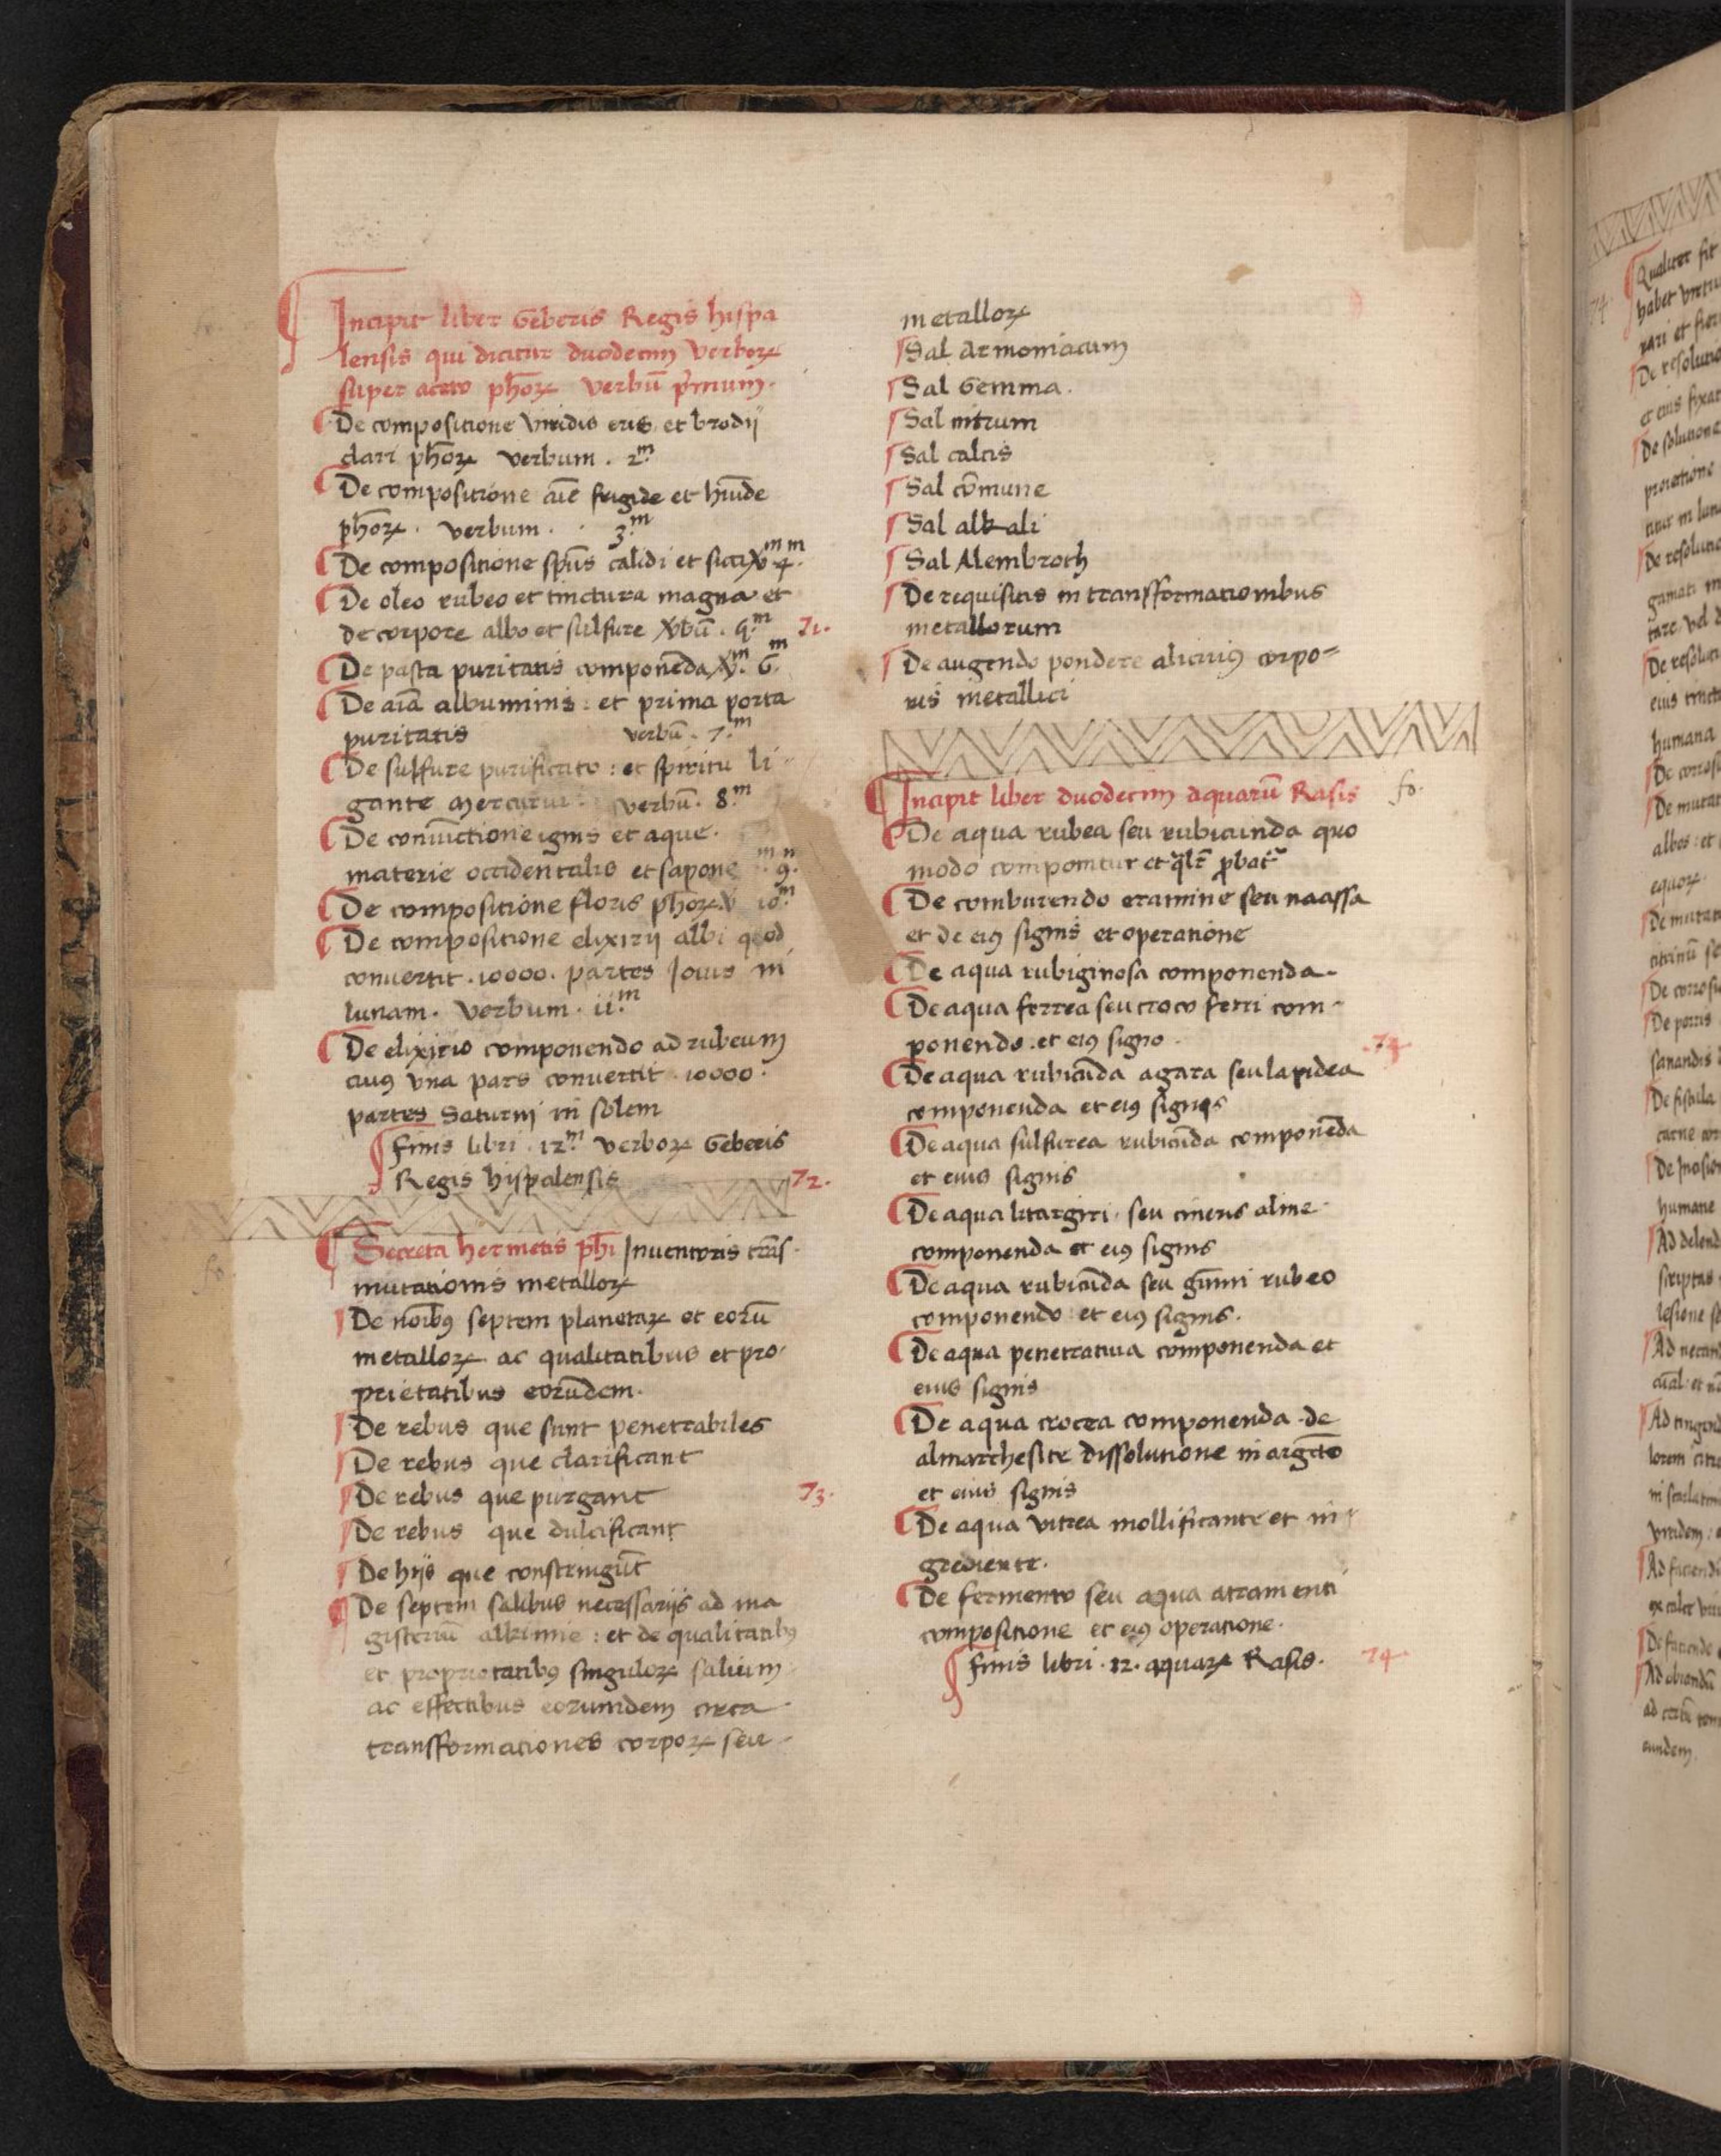 Incipit liber Geberis Regis hispa
lensis qui dicitur duodecim verborꝝ
super aceto ph̄orꝝ verbū p̄mum.
De compositione viridis eris et brodij
clari ph̄orꝝ verbum . 2m
De compositione aīe frigide et hūide
ph̄orꝝ . verbum . 3m
De compositione sp̄us calidi et sicci v̄m 4m
De oleo rubeo et tinctura magna et
de corpore albo et sulfure v̄bū . 5m 71.
De pasta puritatis componēda v̄m. 6m
De aīa albuminis : et prima porta
puritatis verbū . 7m
De sulfure purificato : et spiritu li
gante mercurium: verbū. 8m
De coniūctione ignis et aque.
materie occidentalis et sapone 9.
De compositione floris ph̄orꝝ v 10m
De compositione elixirij albi quod
conuertit . 10000. partes Jouis in
lunam. Verbum . ii.m
De elixirio componendo ad rubeum
cuiꝰ vna pars conuertit 10000.
partes Saturnj in solem
finis libri . 12m verborꝝ Geberis
Regis hispalensis 72.
fo.
Secreta hermetis ph̄i Inuentoris trās
mutationis metallorꝝ
De noībꝰ septem planetarꝝ et eorū
metallorꝝ ac qualitatibus et pro
prietatibus eorūdem.
De rebus que sunt penetrabiles
De rebus que clarificant
De rebus que purgant 73.
De rebus que dulcificant
De hijs que constringūt
De septem salibus necessarijs ad ma
gisteriū alkimie : et de qualitatibꝰ
et proprietatibꝰ singulorꝝ salium
ac effectibus eorumdem circa
transformationes corporꝝ seu
metallorꝝ
Sal Armoniacum
Sal Gemma.
Sal nitrum
Sal calcis
Sal cōmune
Sal alkali
Sal Alembroth
De requisitis in transsformationibus
metallorum
De augendo pondere alicuiꝰ corpo=
ris metallici
Incipit liber duodecim aquarū Rasis fo.
De aqua rubea seu rubicunda quo
modo componitur et q̄lr̄ ꝓbat᷑
De comburendo eramine seu naassa
et de eiꝰ signis et operatione
De aqua rubiginosa componenda.
De aqua ferrea seu croco ferri com
ponendo . et eiꝰ signo . 74
De aqua rubicūda agara seu lapidea
componenda et eiꝰ signis
De aqua sulfurea rubicūda componēda
et eius signis
De aqua litargiri seu cineris aline
componenda et eiꝰ signis
De aqua rubicūda seu gūmi rubeo
componendo et eiꝰ signis.
De aqua penetratiua componenda et
eius signis
De aqua crocea componenda de
almarchesite dissolutione in argēto
et eius signis
De aqua vitrea mollificante et in
grediente.
De fermento seu aqua atramenti
compositione et eiꝰ operatione.
finis libri . 12. aquarꝝ Rasis. 74.
74.
Qualiter fit
De resolutio
De solutione
humana
humane
eundem.